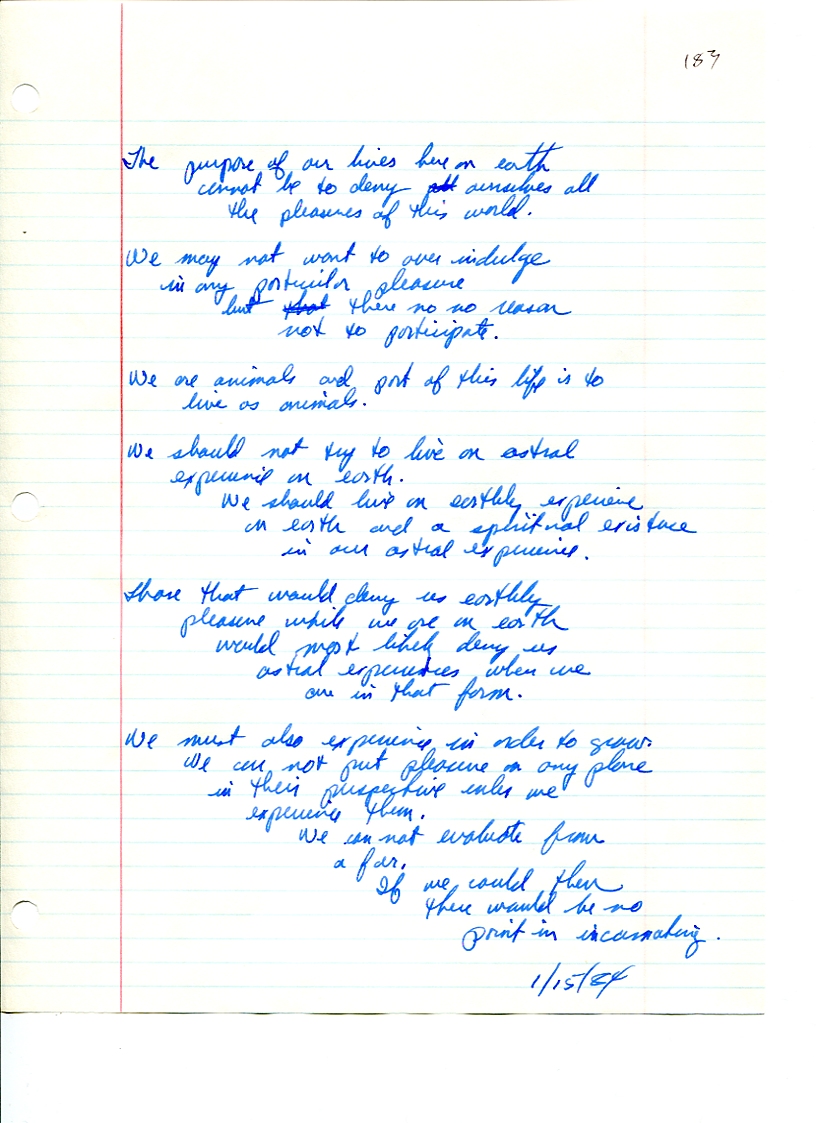 183
The purpose of our lives here on earth
cannot be to deny all ourselves all
the pleasures of this world.
We may not want to over indulge
in any particular pleasure
but that there no no reason
not to participate.
We are animals and part of this life is to
live as animals.
We should not try to live an astral
experience on earth.
We should live an earthly experience
on earth and a spiritual existence
in our astral experience.
Those that would deny us earthly
pleasure while we are on earth
would most likely deny us
astral experiences when we
are in that form.
We must also experience in order to grow.
We can not put pleasure on any plane
in their perspective unless we
experience them.
We can not evaluate from
a far.
If we could then
there would be no
point in incarnating.
1/15/84